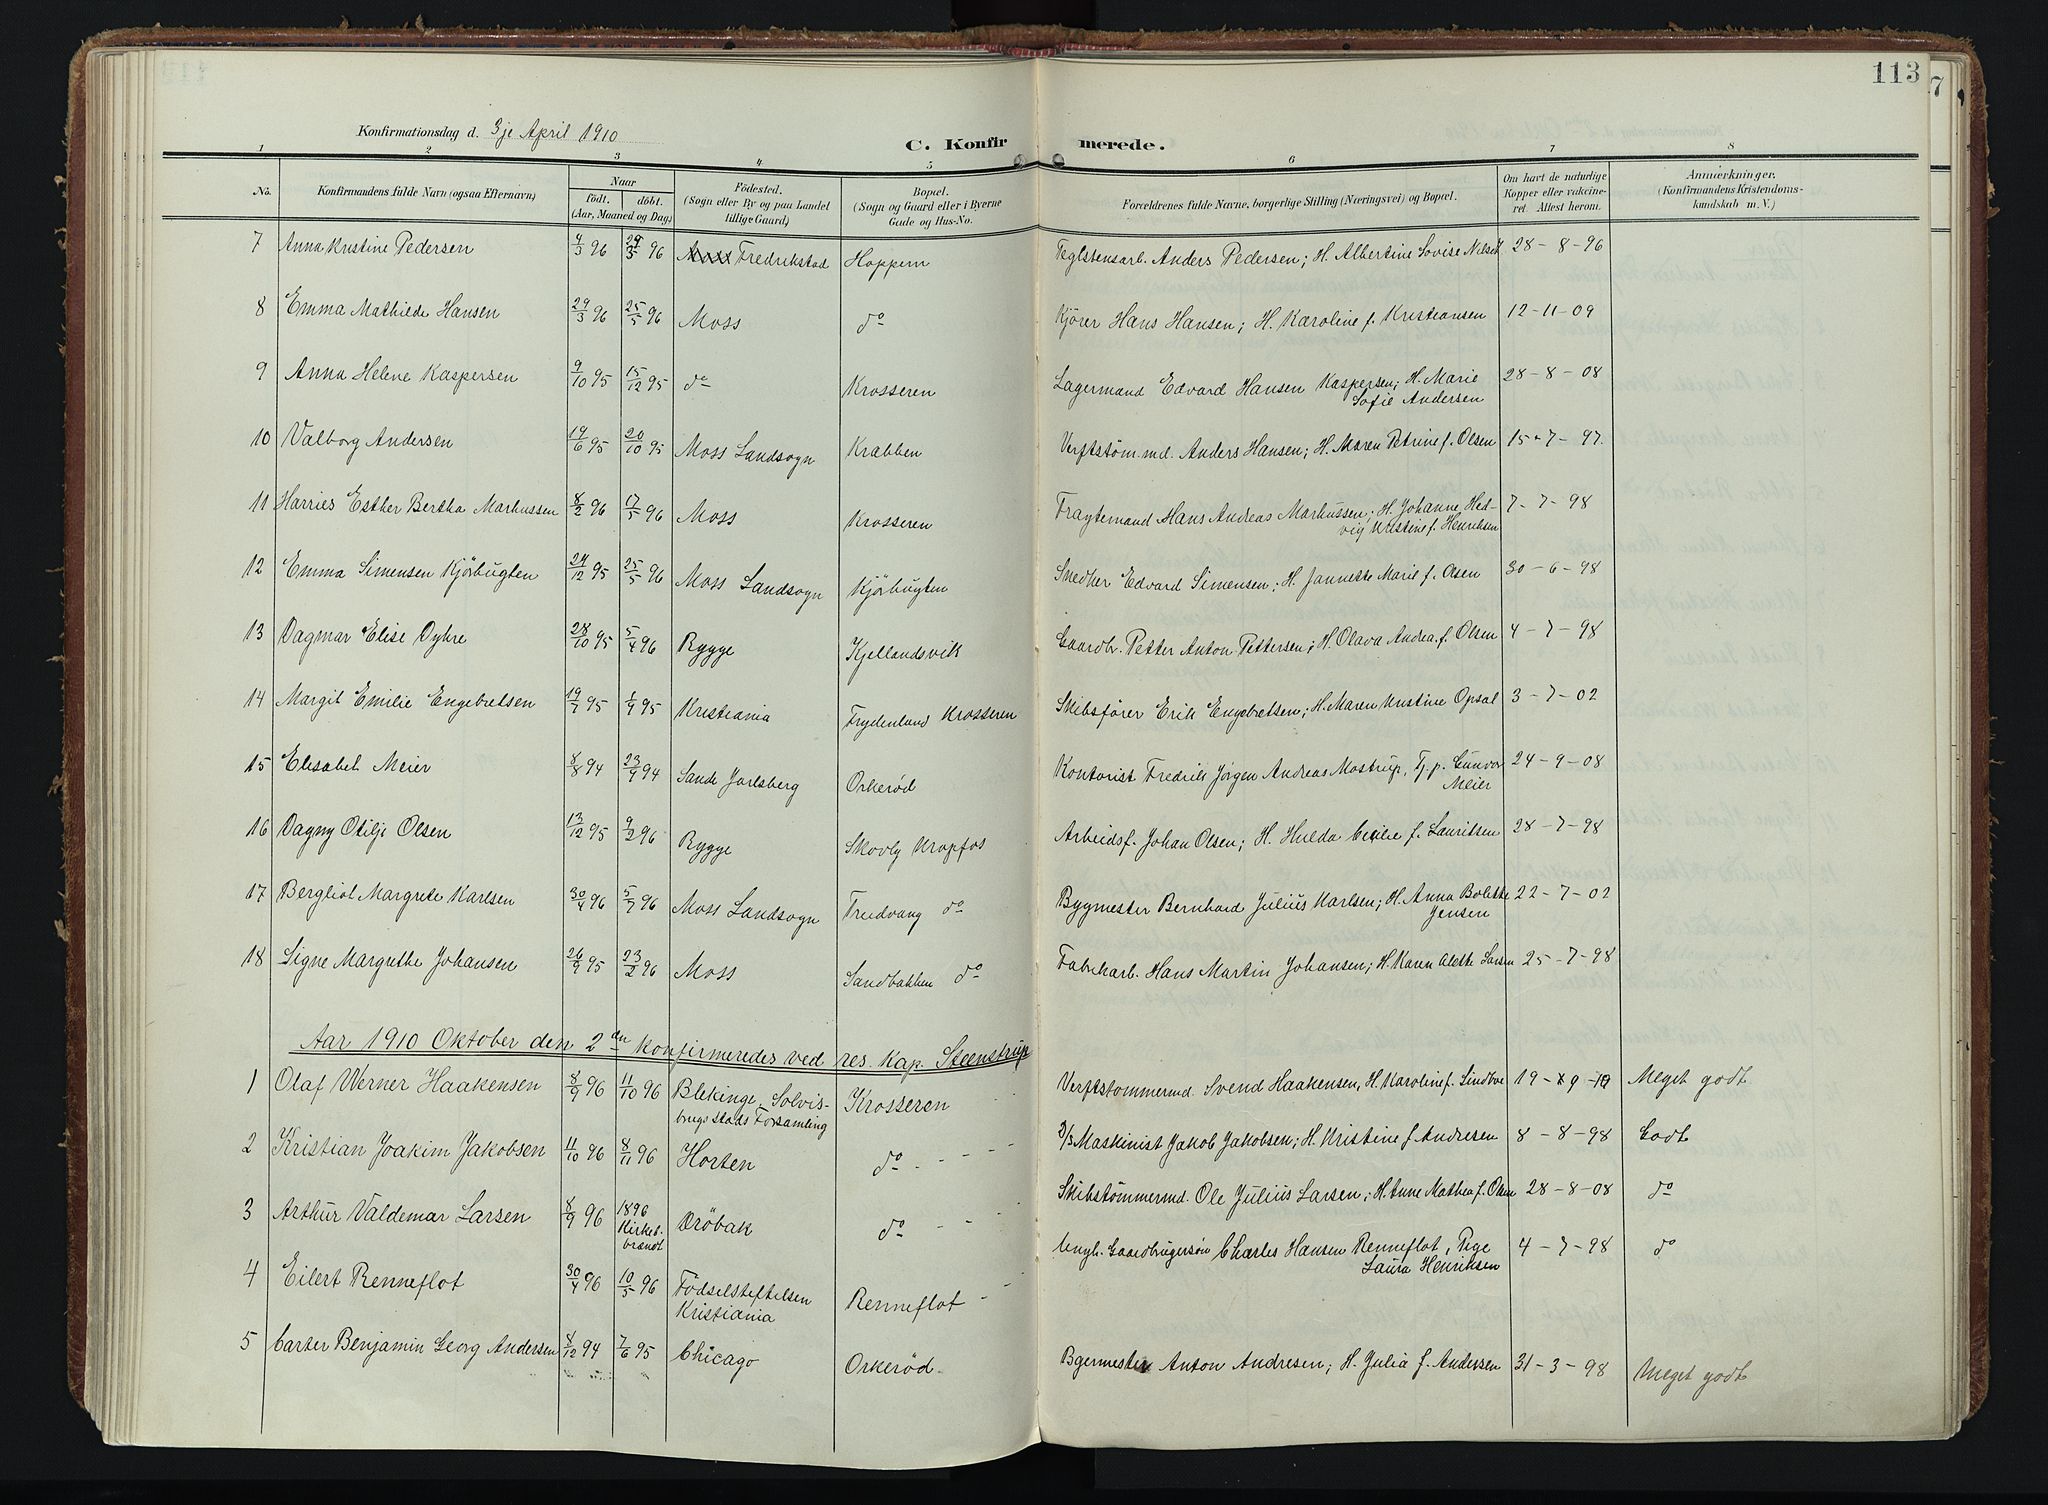 113
Konfirmationsdag d. 3je April 1910
C. Konfirmerede.
1 2 3 4 5 6 7 8
No. Konfirmandens fulde Navn (ogsaa Efternavn) Naar födt. döbt. (Aar, Maaned og Dag) Födested. (Sogn eller By og paa Landet tillige Gaard) Bopæl. (Sogn og Gaard eller i Byerne Gade og Hus-No. Forældrenes fulde Navne, borgerlige Stilling (Næringsvei) og Bopæl. Om havt de naturlige Kopper eller vakcineret. Attest herom. Anmærkninger. (Konfirmandens Kristendomskundskab m. V.)
7 Anna Kristine Pedersen 4/3 96 29/3 96 Fredrikstad Hoppern Teglstensarb. Anders Pedersen; H. Albertine Lovise 28-8-96
8 Emma Mathilde Hansen 29/3 96 25/5 96 Moss do Kjörer Hans Hansen; H. Karoline f. Kristiansen 12-11-09
9 Anna Helene Kaspersen 9/10 95 15/12 95 do Krosseren Lagermand Edvard Hansen Kaspersen; H. Marie Sofie Andersen 28-8-08
10 Valborg Andersen 19/6 95 20/10 95 Moss Landsogn Krabben Verftstöm.md. Anders Hansen; H. Maren Petrine f. Olsen 15-7-97
11 Harries Esther Bertha Markussen 8/2 96 17/5 96 Moss Krosseren Fragtemand Hans Andreas Markussen; H. Johanne Hedvig Kristine f. Henriksen 7-7-98
12 Emma Simensen Kjörbugten 24/12 95 25/5 96 Moss Landsogn Kjörbugten Snedker Edvard Simensen; H. Jannette Marie f. Olsen 30-6-98
13 Dagmar Elise Dyhre 28/10 95 5/4 96 Rygge Kjellandsvik Gaardbr. Petter Anton Pettersen; H. Olava Andrea f. Olsen 4-7-98
14 Margit Emilie Engebretsen 19/7 95 95 Kristiania Frydenlund Krosseren Skibsförer Erik Engebretsen; H. Maren Kristine Opsal 3-7-02
15 Elisabet Meier 8/8 94 23/9 94 Sande Jarlsberg Orkeröd Kontorist Fredrik Jörgen Andreas Mostrup, Tj. p. Gunvor Meier 24-9-08
16 Dagny Otilje Olsen 13/12 95 9/2 96 Rygge Skovly Kropfos Arbeidsf. Johan Olsen; H. Hulda Cecilie f. Lauritsen 28-7-98
17 Bergliot Margrete Karlsen 30/4 96 5/7 96 Moss Landsogn Trudvang do Bygmester Bernhard Julius Karlsen; H. Anna Bolette Jensen 22-7-02
18 Signe Margrethe Johansen 26/9 95 23/2 96 Moss Sandbakken do Fabrikarb. Hans Martin Johansen; H. Karen Alette Larsen 25-7-98
Aar 1910 Oktober den 2den konfirmeredes ved res. kap. Steenstrup
1 Olaf Werner Haakensen 8/9 96 11/10 96 Blekinge, Solvisbrugs stads Forsamling Krosseren Verftstömmermd. Svend Haakensen, H. Karoline f. 19- Meget godt
2 Kristian Joakim Jakobsen 11/10 96 8/11 96 Horten do Maskinist Jakob Jakobsen; H. Kristine f. Andresen 8-8-98 Godt
3 Arthur Valdemar Larsen 8/9 96 1896 Kirkebrændt Dröbak do Skibstömmermd. Ole Julius Larsen; H. Anne Mathea f. Olsen 28-8-08 do
4 Eilert Renneflot 30/4 96 10/5 96 Födselstiftelsen Kristiania Renneflot Ungk. Gaardbrugersön Charles Hansen Renneflot, Pige Laura Henriksen 4-7-98 do
5 Carter Benjamin Georg Andersen 8/12 94 7/6 95 Chicago Orkeröd Bgermester Anton Andresen; H. Julia f. Andersen 31-3-98 Meget godt